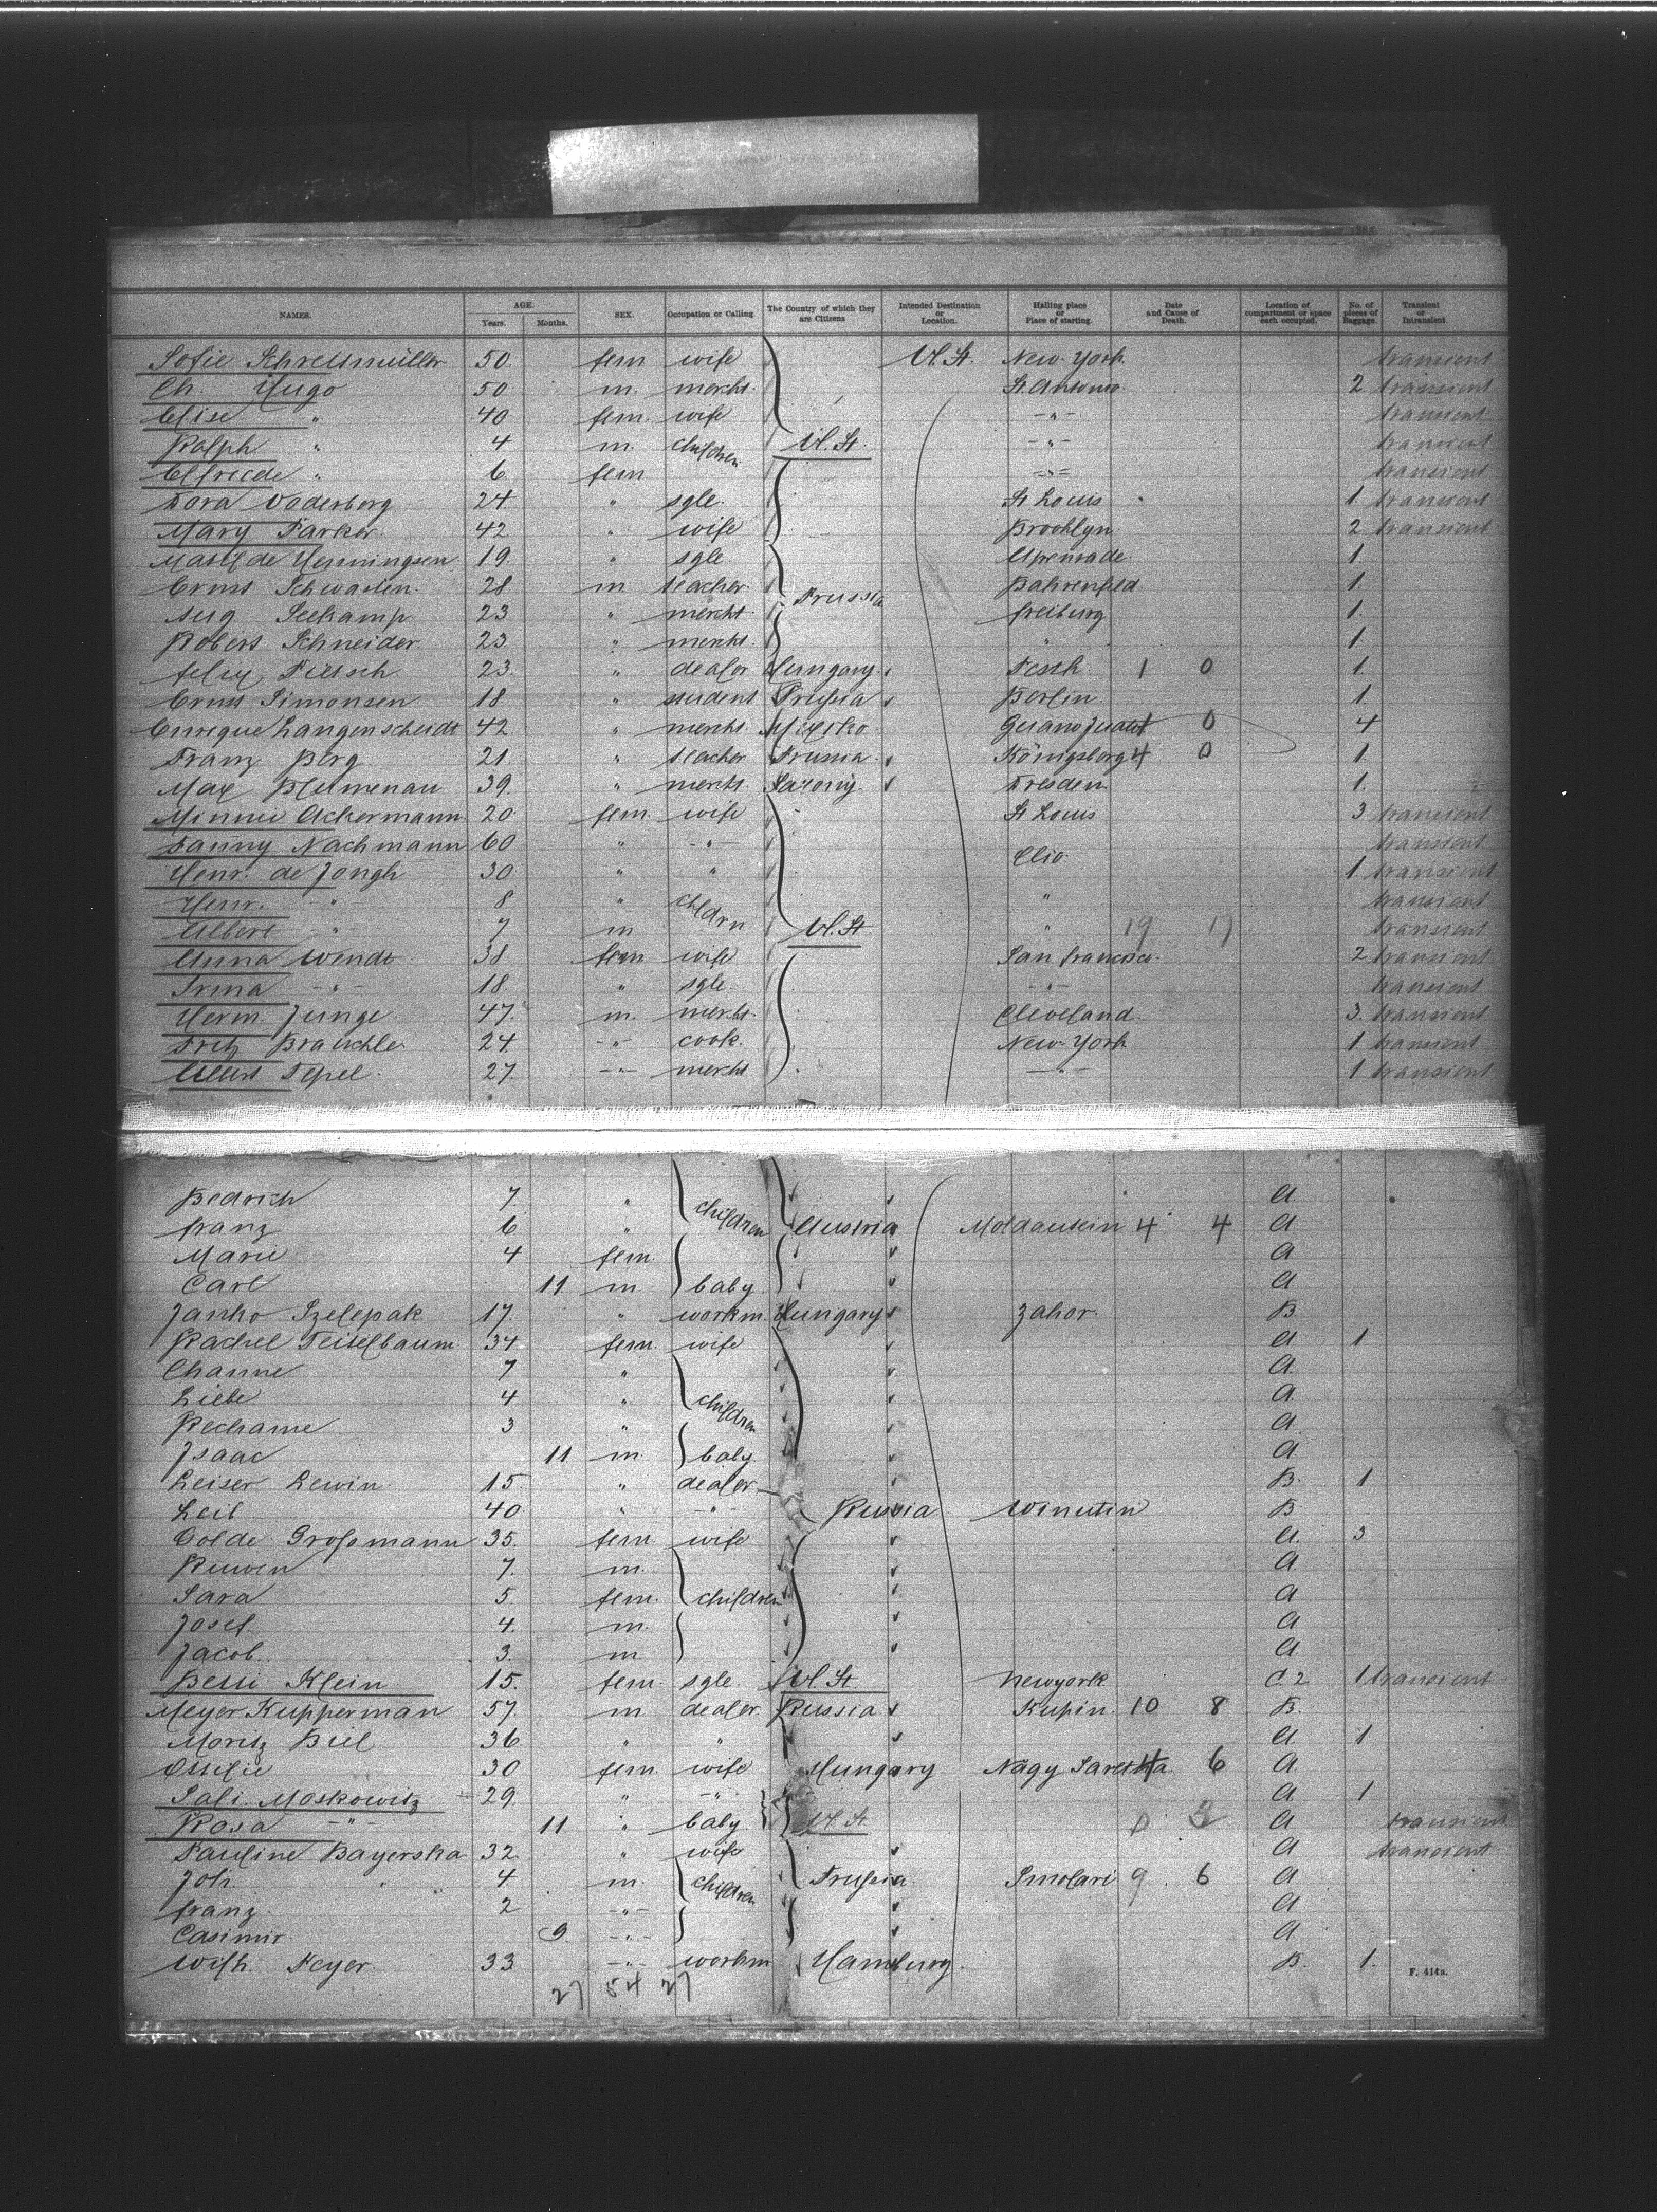 NAMES. AGE. Years. Months. SEX. Occupation or Calling. The Country of which they are Citizens Intended Destination or Location. Halling place or Place of starting. Date and Cause of Death. Location of compartment or space each occupied. No. of pieces of Baggage. Transient or Intransient.
Sofie Schrellmüller 50. fem wife U. St. New-York transient
Ch. Hugo 50 m. mercht. St. Antonio 2 transient
Elise " 40 fem. wife -"- transient
Ralph " 4 m. children U. St. -"- transient
Elfriede " 6 fem. -"- transient
Dora Woderberg 24. " sgle. St Louis 1. transient
Mary Parker 42 " wife Brooklyn 2 transient
Mathilde Henningsen 19. " sgle Apenrade 1.
Ernst Schwarten 28 m teacher Prussia Bahrenfeld 1.
Aug Seekamp 23 " mercht freiburg 1.
Robert Schneider 23 " mercht. " 1.
felix Pietsch 23. " dealer Hungary. Pesth 1 0 1.
Ernst Simonsen 18 " student Prussia Berlin 1.
Enrique Langenscheidt 42 " mercht. Mexiko 0 4
Franz Berg 21 " teacher Prussia Königsberg 4 0 1.
Max Blumenau 39. " mercht. Saxony. Dresden 1.
Minnie Ackermann 20 fem. wife St Louis 3 transient
Fanny Nachmann 60 " -"- transient
Henr. de Jongh 30 " " Clio 1. transient
Henr. -"- 8 " chldrn " transient
Albert -"- 7 m U. St. " 19 17 transient
Anna Wendt 38 fem wife San francisco. 2 transient
Irma -"- 18. " sgle. -"- transient
Herm. Junge 47. m. mercht. Cleveland. 3. transient
Fritz Brauchle 24 -"- cook. New-York 1 transient
Albert Tepel 27. -"- mercht -"- 1 transient
Bedrich 7. " children A.
franz 6 " Austria Moldautein 4 4 A
Marie 4 fem. A
Carl 11 m. baby A
Janko Szelepak 17. " workm. Hungary Zahor. B.
Rachel Teitelbaum 34 fem. wife A 1
Channe 7 " A.
Liebe 4 " children A.
Rechame 3 " A.
Isaac 11 m. baby. A
Leiser Lewin 15. " dealer B. 1
Leib 40 " -"- Russia Winutin B
Golde Grossmann 35. fem. wife A. 3
Ruwen 7. m. A
Sara 5 fem. children A
Josef. 4. m. A
Jacob. 3. m A
Bessi Klein 15. fem. sgle U. St. Newyork C. 2 1 transient
Meyer Kupperman 57. m. dealer Russia Kupin. 10 8 B.
Moritz Biel 36 " " A 1
Ottilie 30 fem. wife Hungary Nagy 4 6 A
Sali. Moskowitz 29. " -"- A 1
Rosa -"- 11. " baby U. St. 0 3 A transient
Pauline Bayerska 32 " wife A transient
Joh. 4 m. children Prussia. Smolari 9 6 A
franz. 2 -"- A
Casimir. 9. -"- A
Wilh. Feyer 33. -"- workm Hamburg. B. 1.
27 54 27
F. 414a.